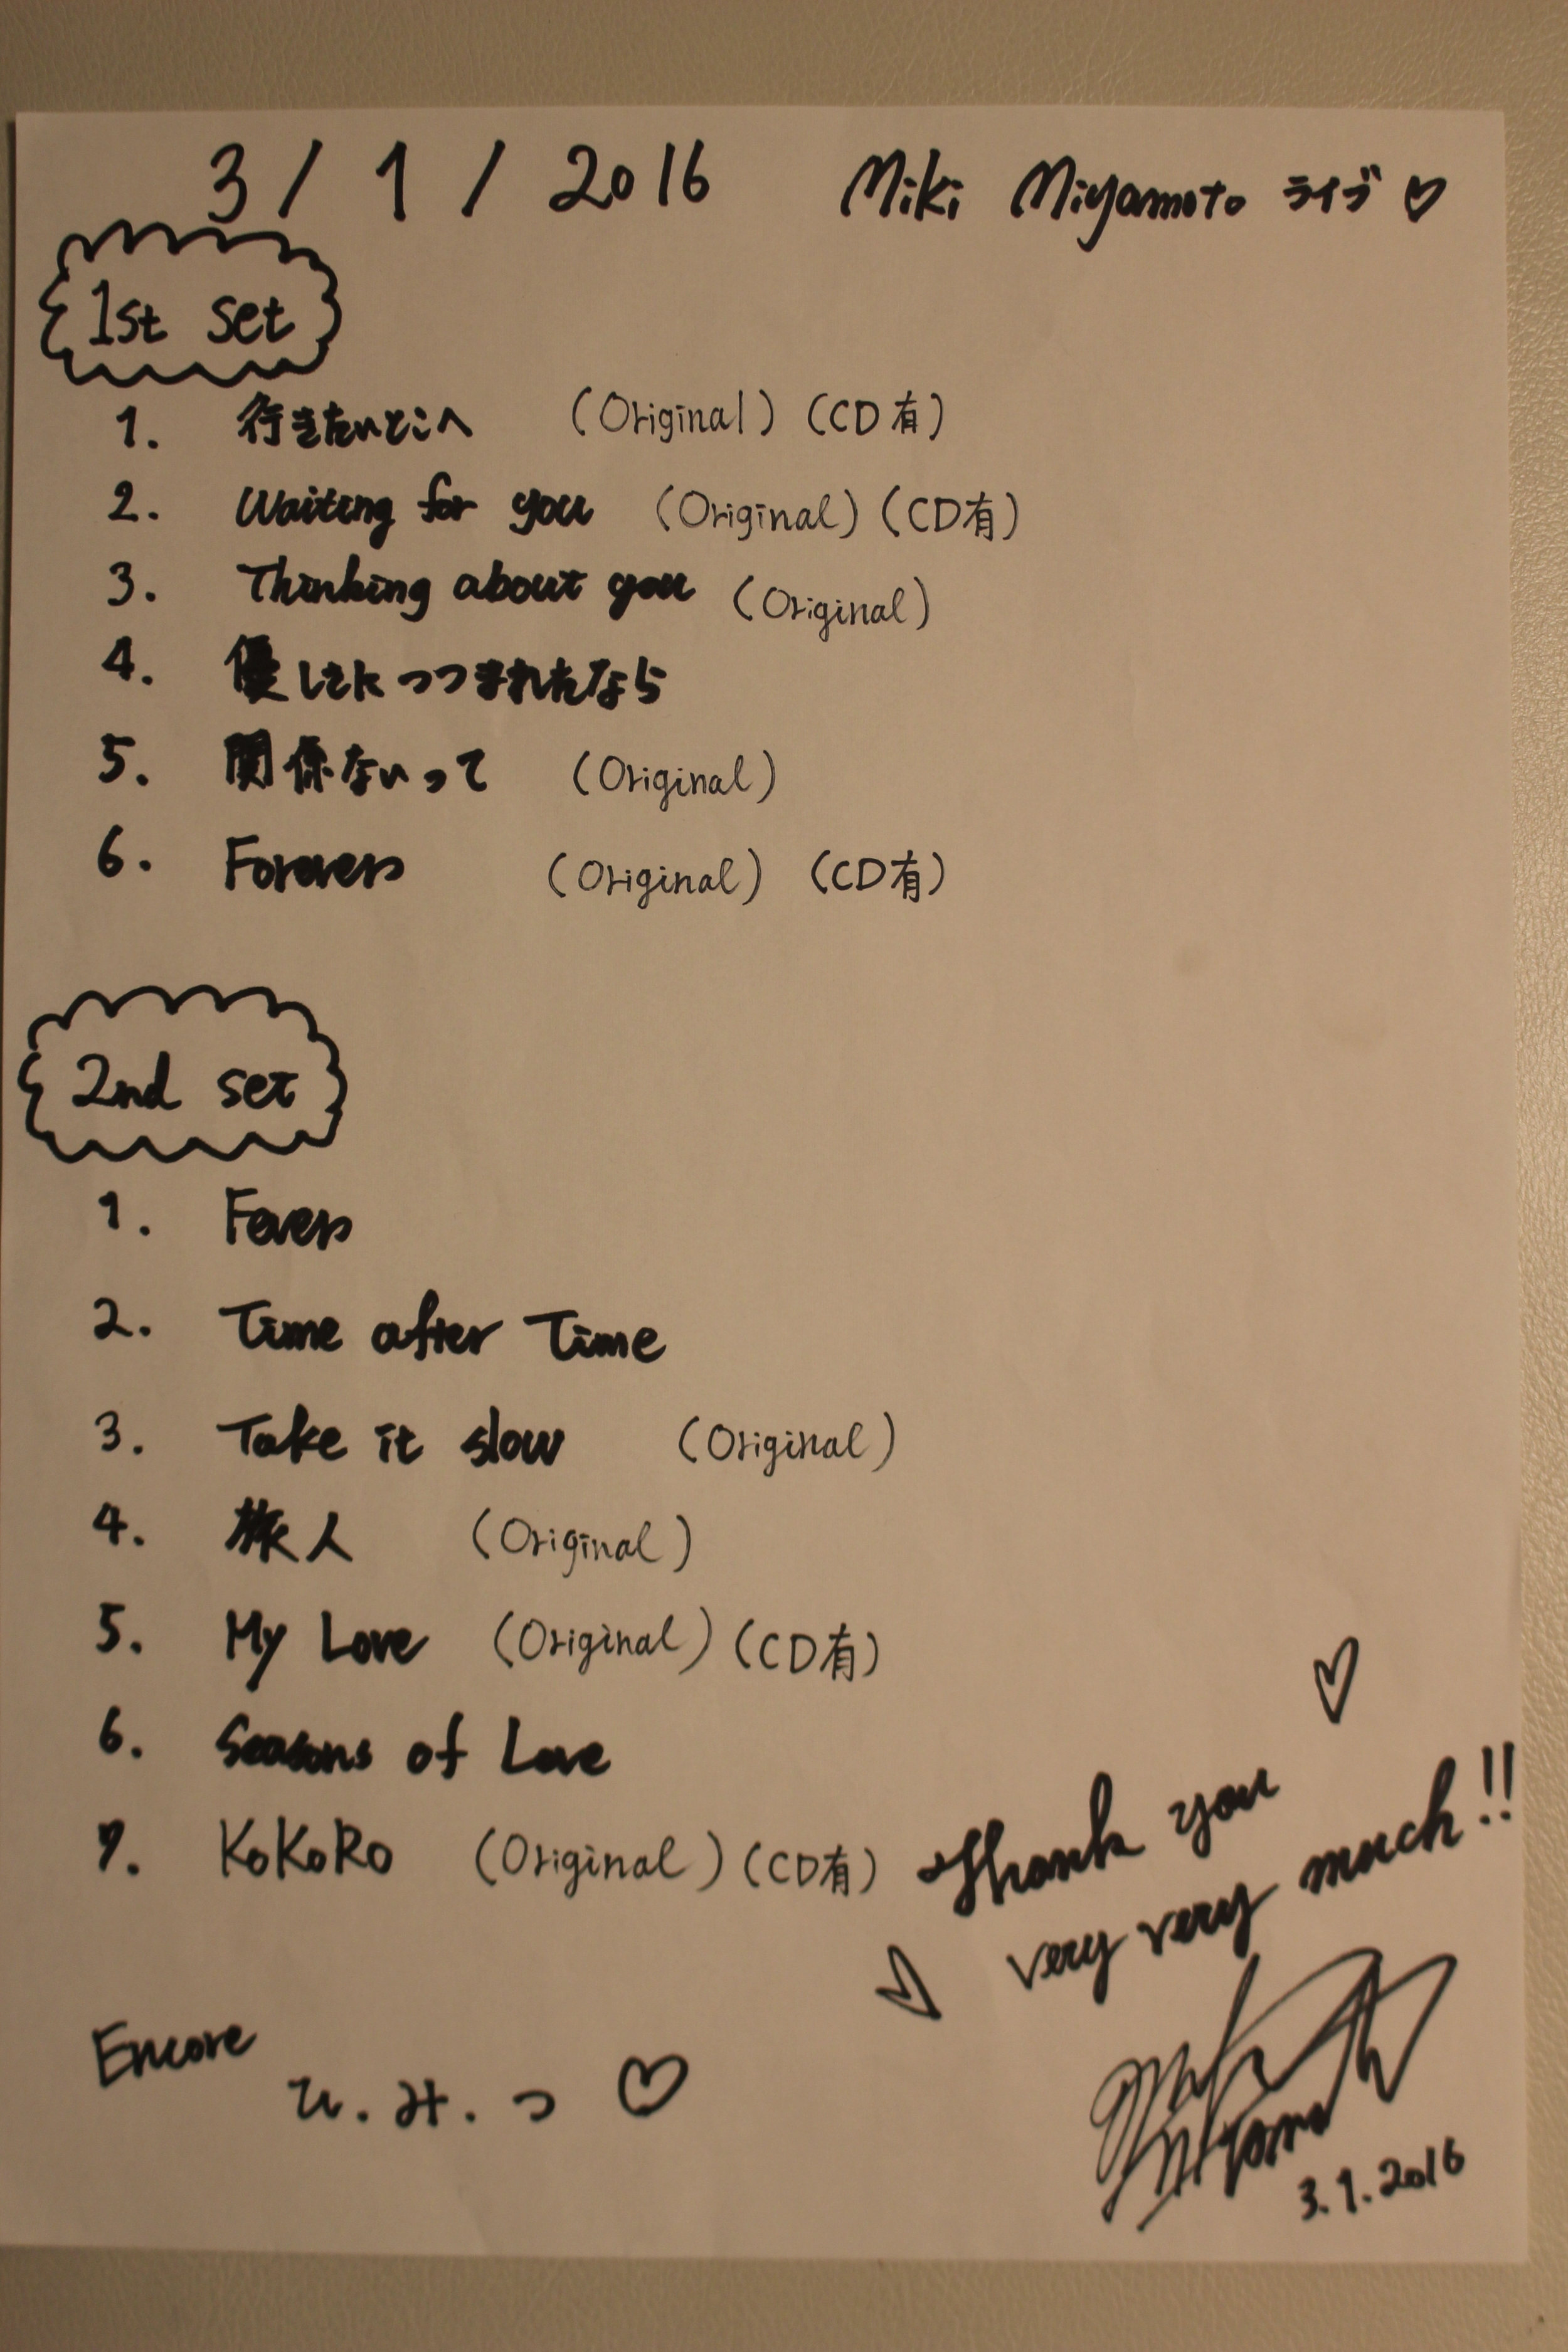 3/1/2016 Miki Miyamoto ライブ♡
1st set
1. 行きたいとこへ (Original) (CD有)
2. Waiting for you (Original) (CD有)
3. Thinking about you (Original)
4. 優しさにつつまれたなら
5. 関係ないって (Original)
6. Forever (Original) (CD有)
2nd set
1. Fever
2. Time after Time
3. Take it slow (Original)
4. 旅人 (Original)
5. My Love (Original) (CD有)
6. Seasons of Love
7. KoKoRo (Original) (CD有)
Thank you ♡
very very much!!
Encore
ひ.み.つ ♡
Miki
Miyamoto
3.1.2016